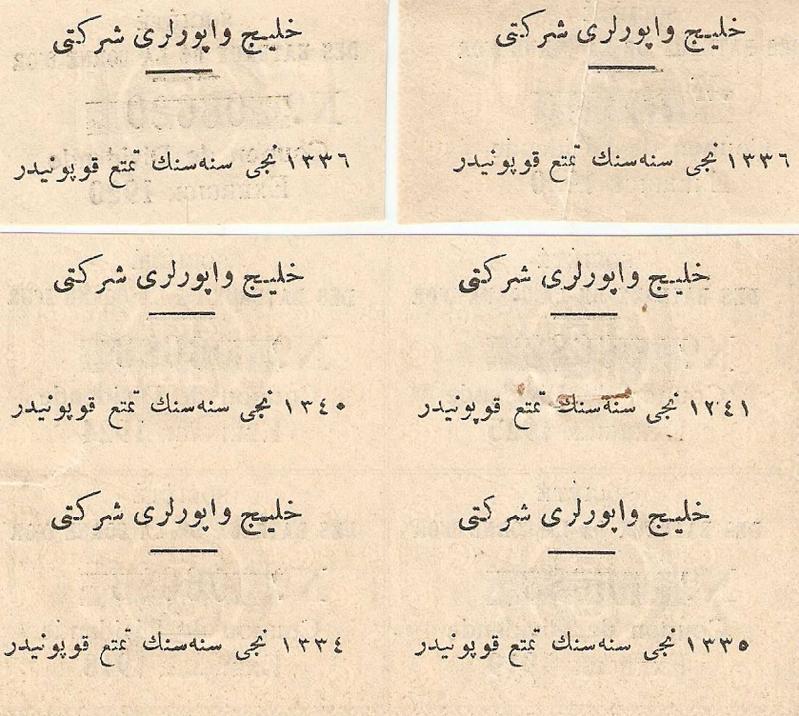 خليج واپورلرى شركتى
١٣٣٦ نجى سنه‌سنك تمتع قوپونيدر
خليج واپورلرى شركتى
١٣٣٦ نجى سنه‌سنك تمتع قوپونيدر
خليج واپورلرى شركتى
١٢٤١ نجى سنه‌سنك تمتع قوپونيدر
خليج واپورلرى شركتى
١٣٤٠ نجى سنه‌سنك تمتع قوپونيدر
خليج واپورلرى شركتى
١٣٣٥ نجى سنه‌سنك تمتع قوپونيدر
خليج واپورلرى شركتى
١٣٣٤ نجى سنه‌سنك تمتع قوپونيدر